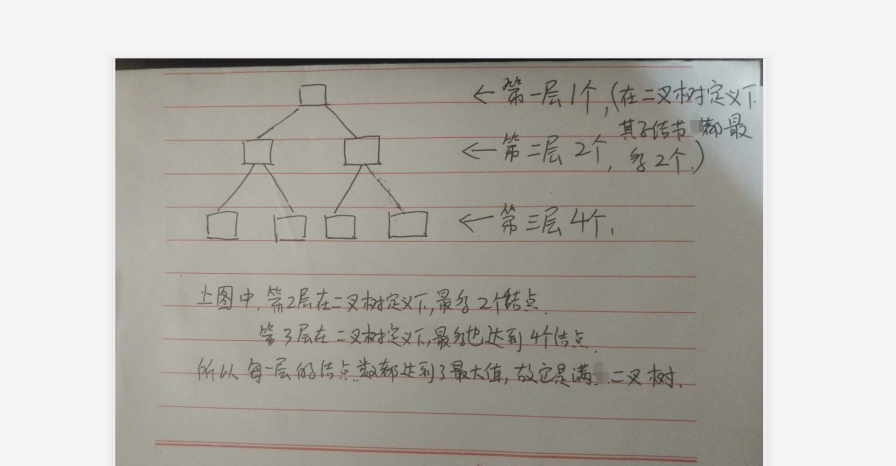 ←第一层1个,(在二叉树定义下
其子结节 都最
←第二层 2个, 多2个.)
←第三层 4个,
上图中,第2层在二叉树定义下,最多2个结点.
第3层在二叉树定义下,最多也达到4个结点.
所以每一层的结点数都达到了最大值,故它是满 二叉树.